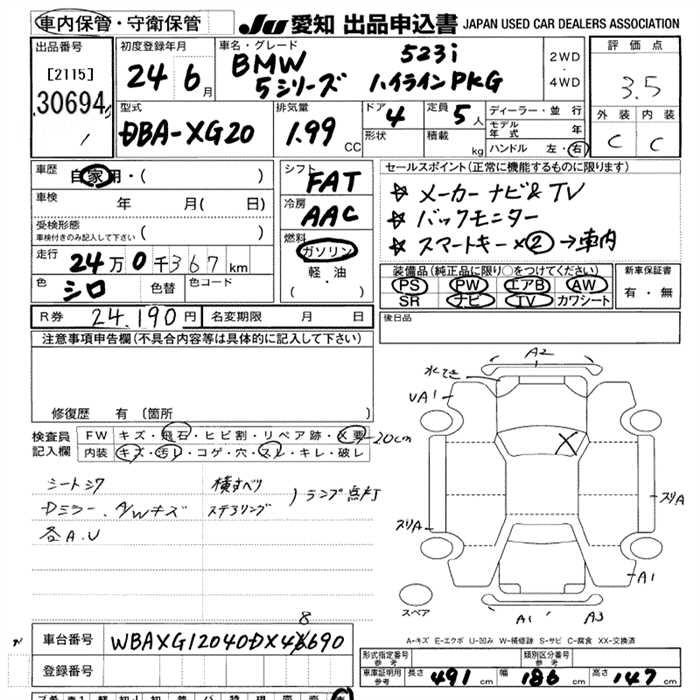 車内保管・守衛保管
JU 愛知 出品申込書 JAPAN USED CAR DEALERS ASSOCIATION
出品番号
[2115]
30694
初度登録年月
24 6月
車名・グレード
BMW 523i
5シリーズ ハイラインPKG
2WD
4WD
評価点
3.5
外装 内装
C C
型式
DBA-XG20
排気量
1.99 CC
ドア
4
形状
定員
5人
積載 kg
ディーラー・並行
モデル年式 年
ハンドル 左・右
車歴
自家用・( )
車検 年 月( 日)
受検形態
車検付きのみ記入して下さい ( )
走行 24万0千367km
色 シロ 色替 色コード
シフト
FAT
冷房
AAC
燃料
ガソリン
軽・油
( ・ )
セールスポイント(正常に機能するものに限ります)
☆ メーカーナビ&TV
☆ バックモニター
☆ スマートキー×② →車内
装備品(純正品に限り○をつけてください)
PS PW エアB AW
SR ナビ TV カワシート
新車保証書
有・無
R券 24,190円 名変期限 月 日
後日品
注意事項申告欄(不具合内容等は具体的に記入して下さい)
修復歴 有 (箇所
検査員記入欄
FW キズ・飛石・ヒビ割・リペア跡・X要 20cm
内装 キズ・汚レ・コゲ・穴・スレ・キレ・破レ
シートシワ 横すべり
Dミラー、A/Wキズ ステアリング ) ランプ点灯
各A.U
A2
UA1
X
スリA
スリA
A1
A1 A3
スペア
A-キズ E-エクボ U-凹み W-補修跡 S-サビ C-腐食 XX-交換済
車台番号 WBAXG12040DX4 690
8
登録番号
形式指定番号
参考
類別区分番号
参考
車庫証明用
参考
長さ 491cm 幅 186cm 高さ 147cm